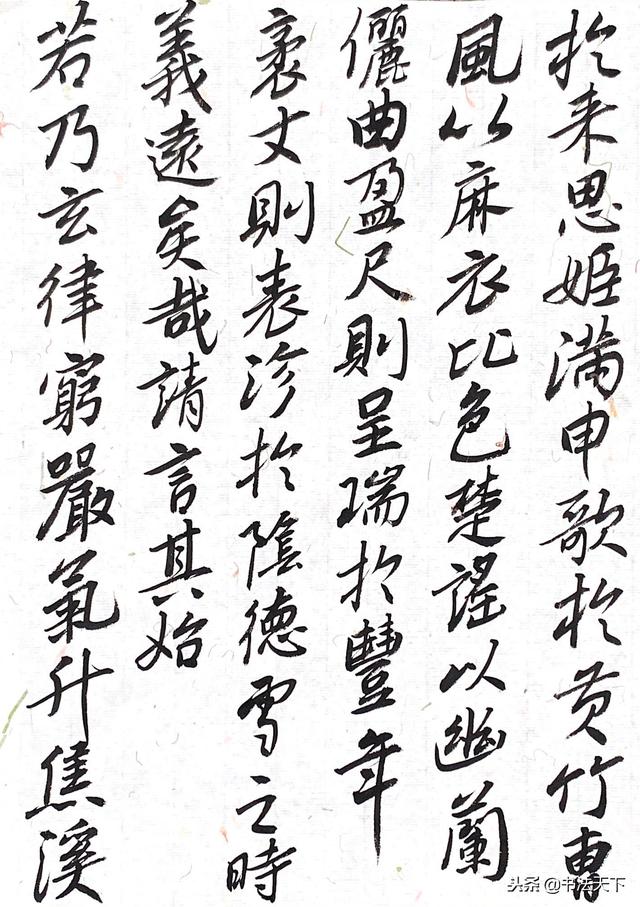 於来思姬滿申歌於黄竹曹
風以麻衣比色楚謠以幽蘭
儷曲盈尺則呈瑞於豐年
袤丈則表沴於陰德雪之時
義遠矣哉請言其始
若乃玄律窮嚴氣升焦溪
头条 @书法天下